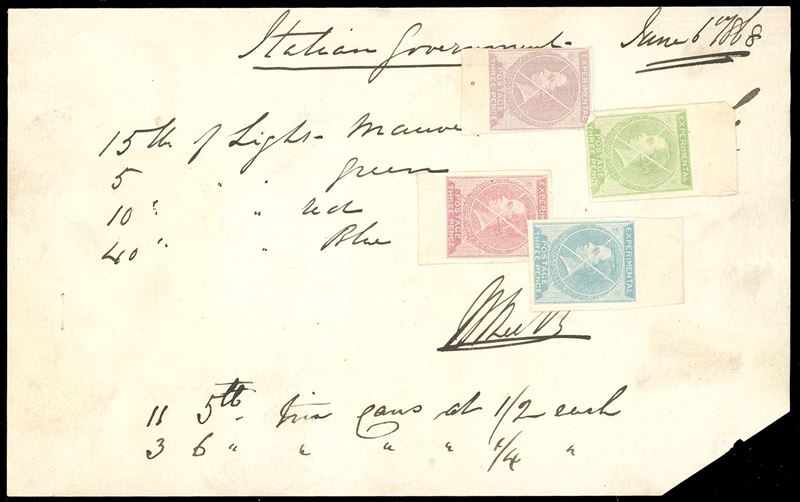 Italian Government June 6th 1868
EXPERIMENTAL
POSTAGE
THREE PENCE
15 lbs of Light Mauve
EXPERIMENTAL
POSTAGE
THREE PENCE
5 " " green
EXPERIMENTAL
POSTAGE
THREE PENCE
10 " " red
40 " " Blue
EXPERIMENTAL
POSTAGE
THREE PENCE
11 5 lb tin cans at 1/2 each
3 6 " " " " 1/4 "